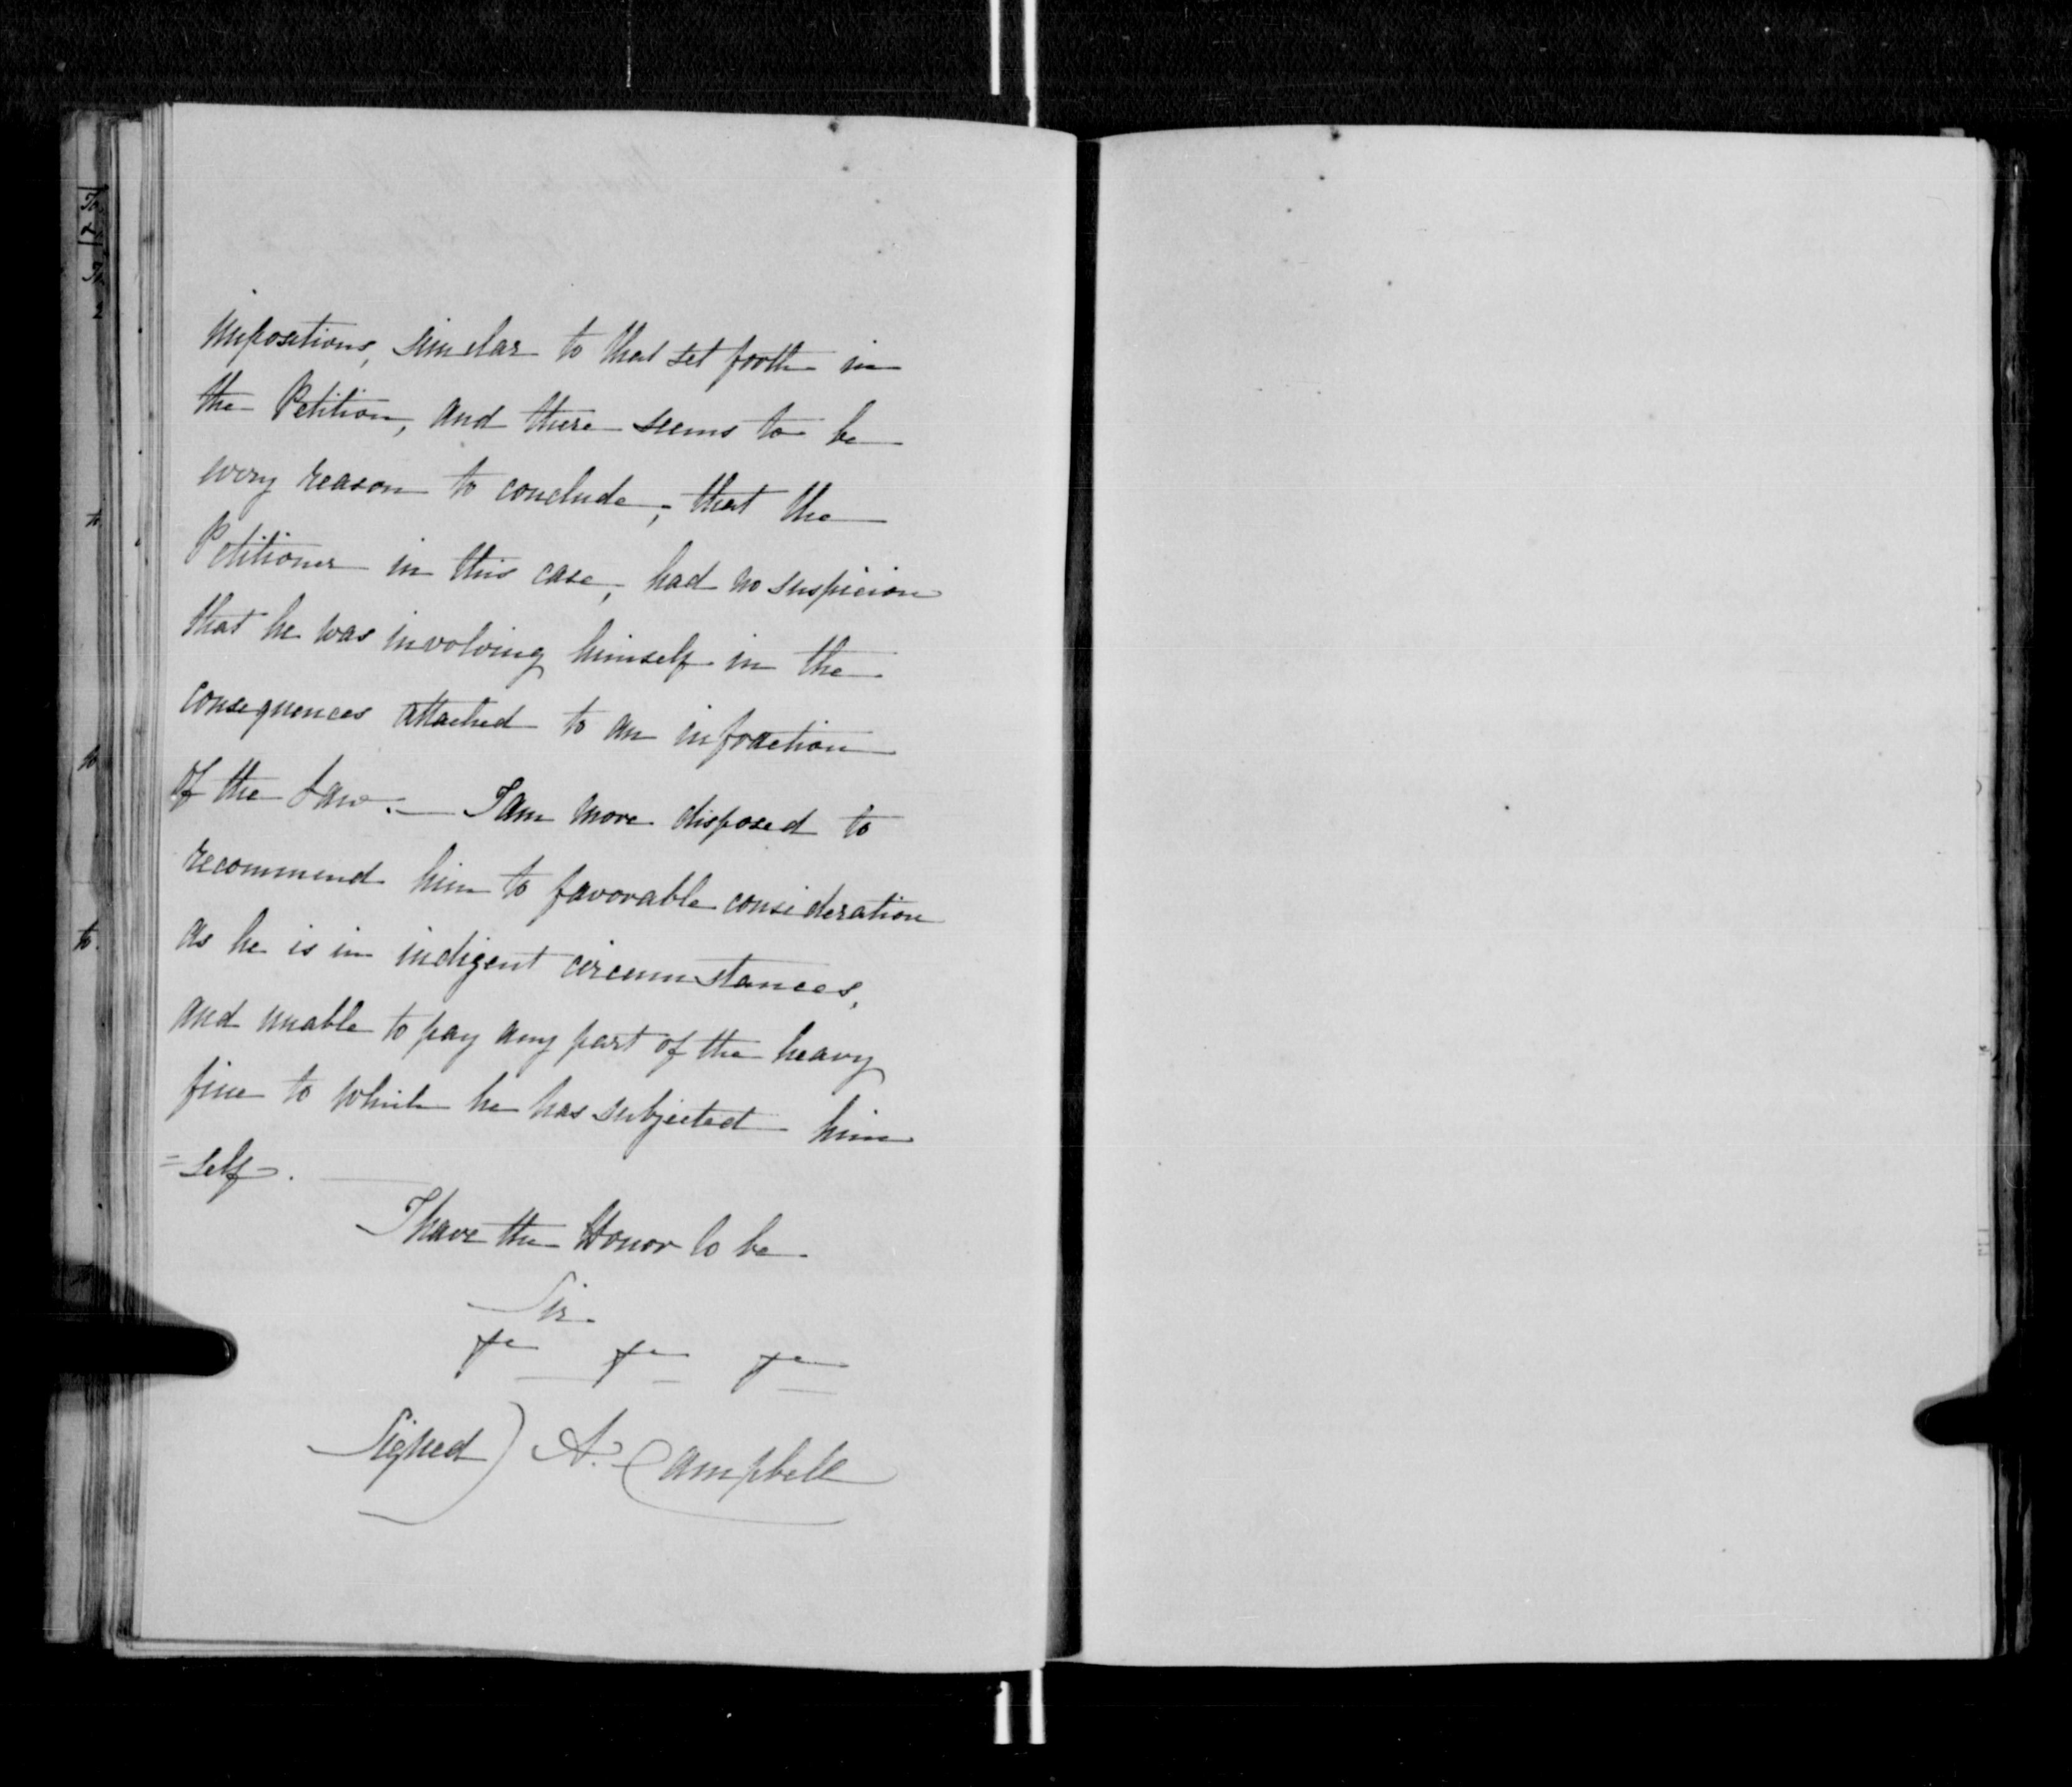 impositions, similar to that set forth in
the Petition, and there seems to be
every reason to conclude, that the
Petitioner in this case, had no suspicion
that he was involving himself in the
consequences attached to an infraction
of the Law. — I am more disposed to
recommend him to favorable consideration
as he is in indigent circumstances,
and unable to pay any part of the heavy
fine to which he has subjected him
=self.
I have the Honor to be
Sir.
&c &c &c
Signed) A. Campbell